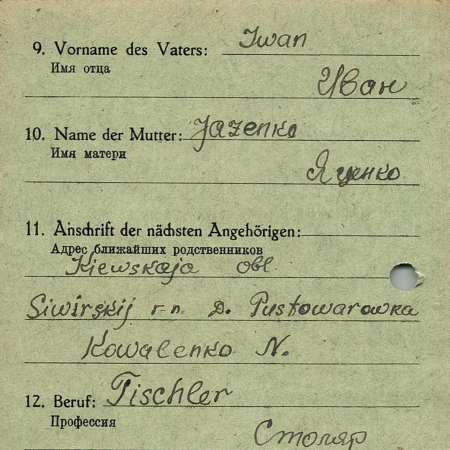 9. Vorname des Vaters: Iwan
Имя отца
Иван
10. Name der Mutter: Jazenko
Имя матери
Яценко
11. Anschrift der nächsten Angehörigen:
Адрес ближайших родственников
Kiewskaja obl.
Siwirskij r-n. D. Pustowarowka
Kowalenko N.
12. Beruf: Tischler
Профессия
Столяр